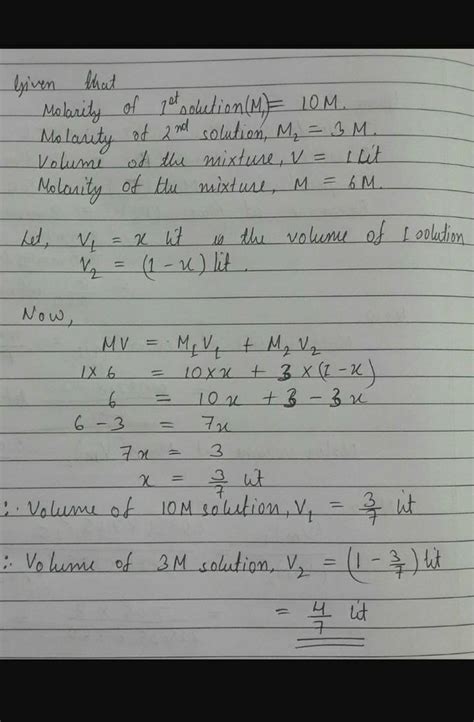 Given that
Molarity of 1st solution (M1) = 10M.
Molarity of 2nd solution, M2 = 3M.
Volume of the mixture, V = 1 lit
Molarity of the mixture, M = 6M.
Let, V1 = x lit is the volume of I solution
V2 = (1-x) lit.
Now,
MV = M1V1 + M2V2
1×6 = 10×x + 3×(1-x)
6 = 10x + 3 - 3x
6-3 = 7x
7x = 3
x = 3/7 lit
∴ Volume of 10M solution, V1 = 3/7 lit
∴ Volume of 3M solution, V2 = (1 - 3/7) lit
= 4/7 lit